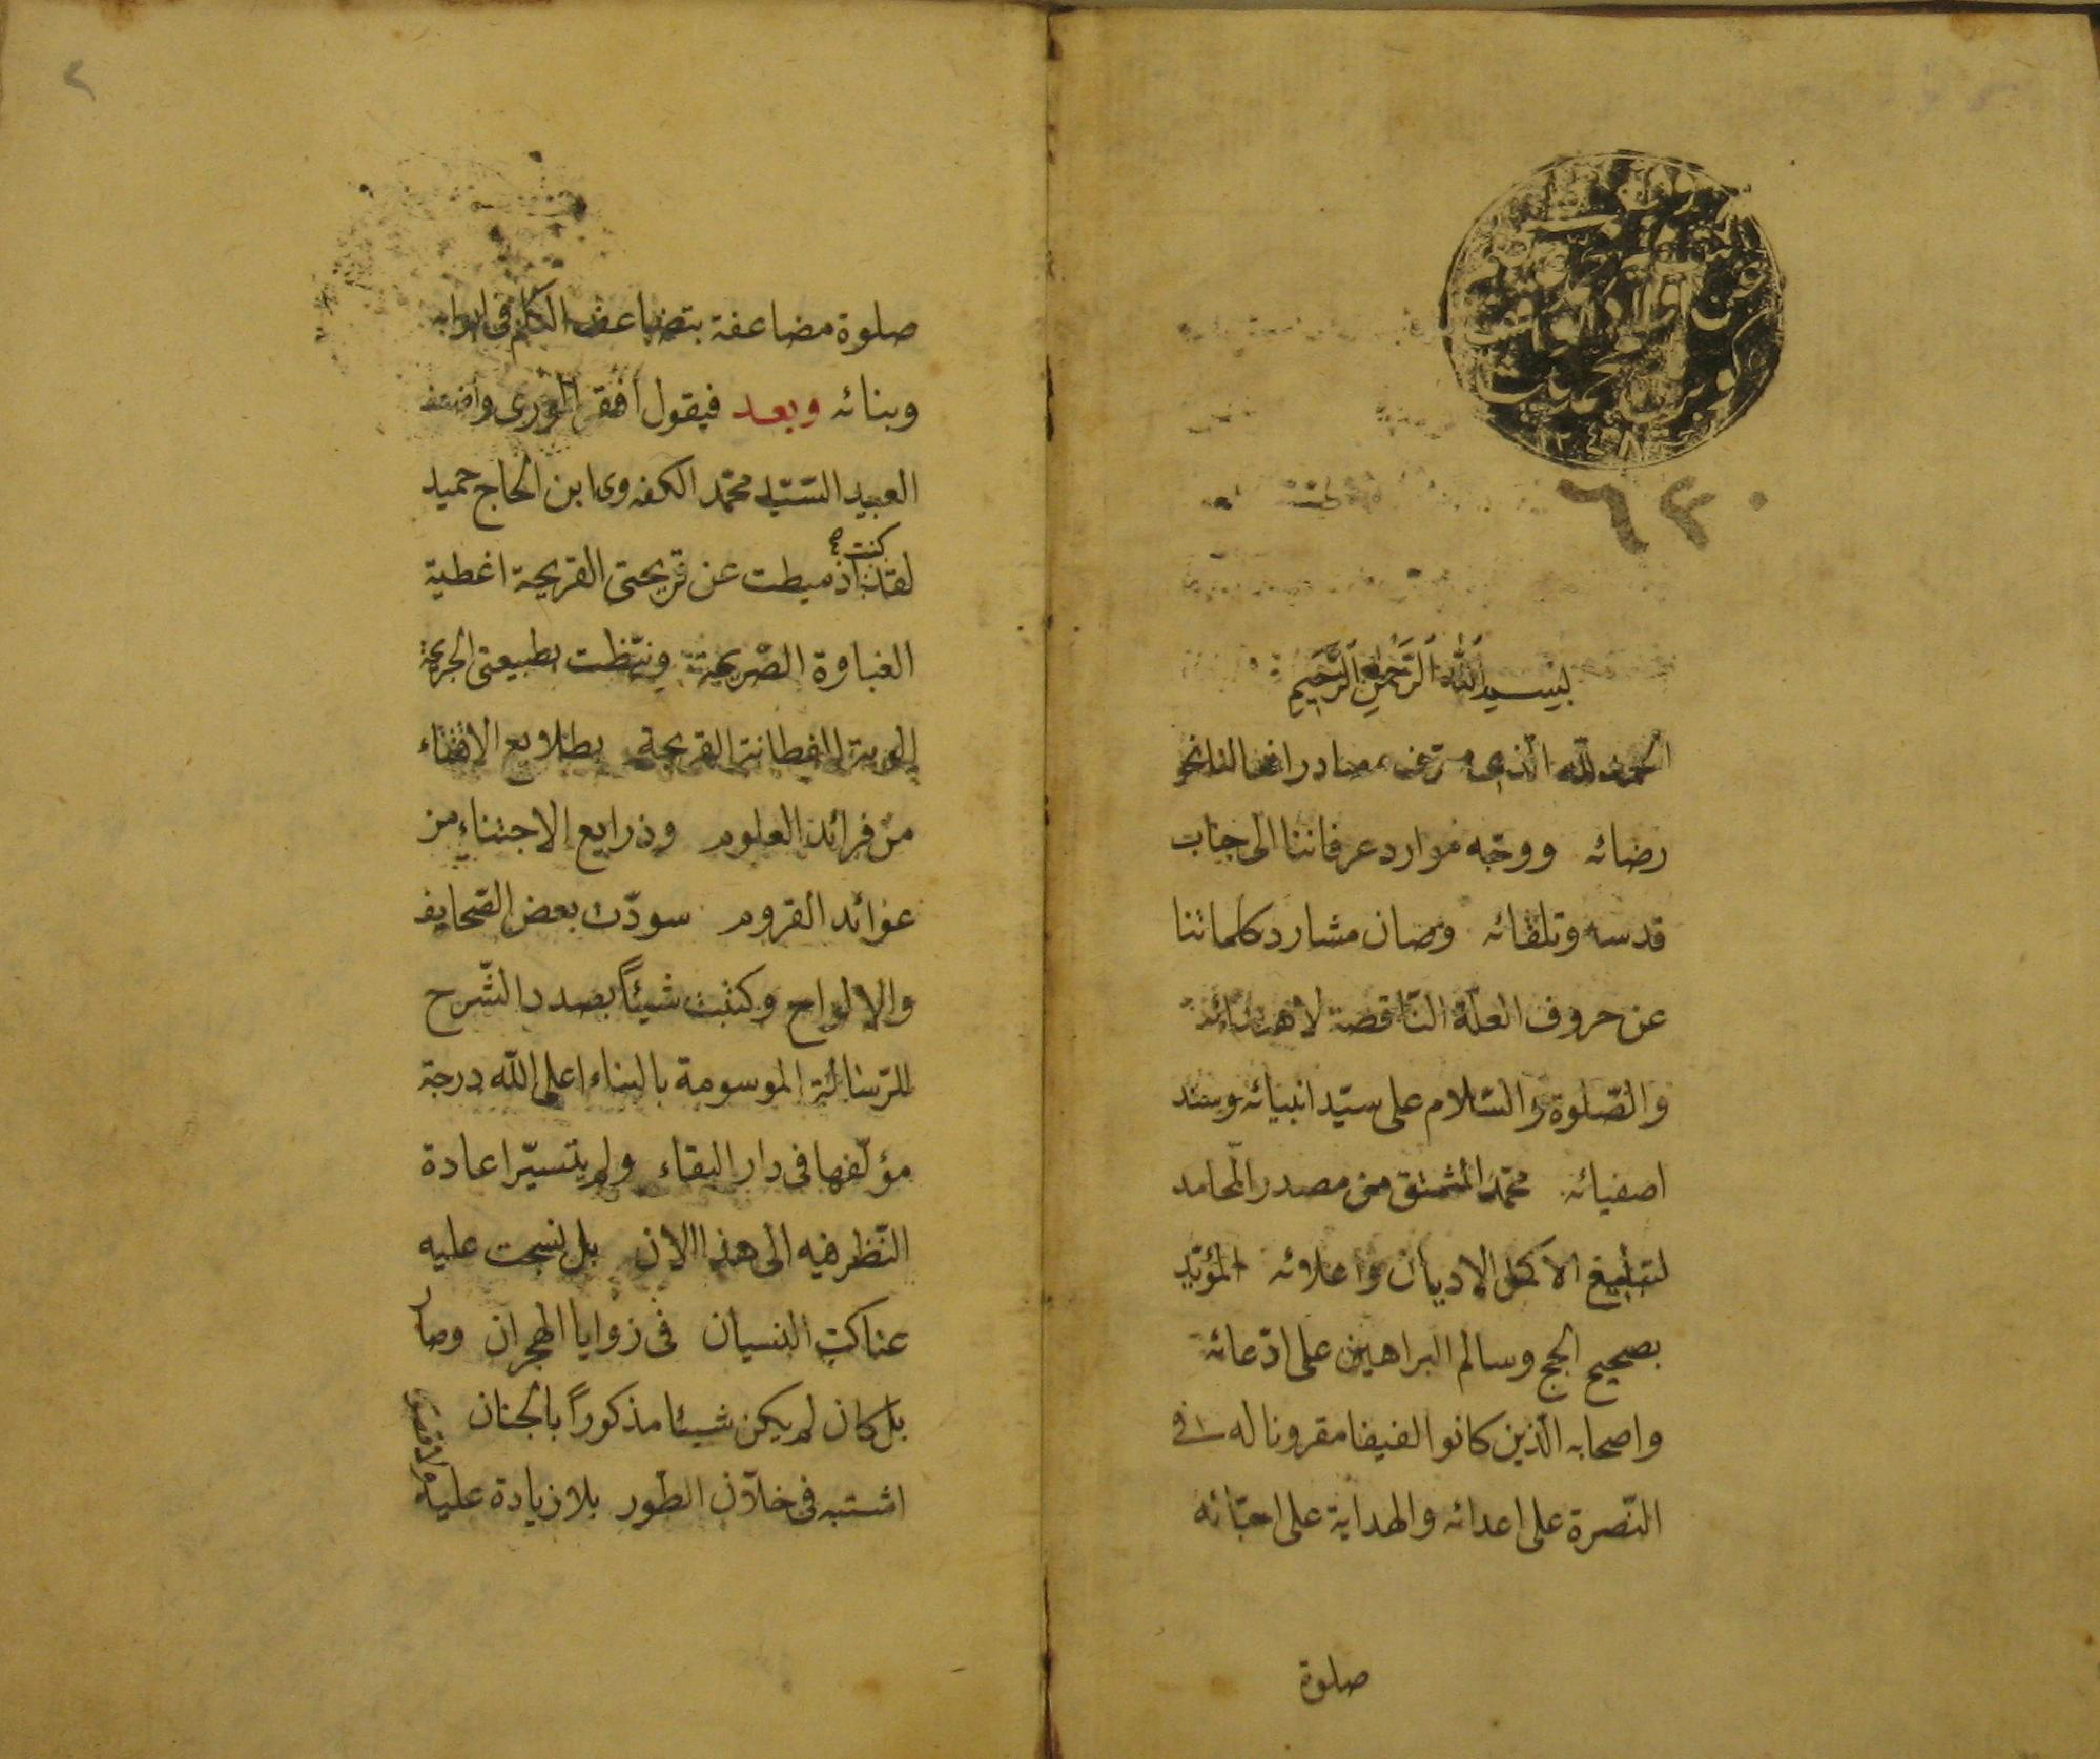 بسم الله الرحمن الرحيم
الحمد لله الذى صرف مصادر افعالنا نحو
رضائه ووجّه موارد عرفاننا الى جناب
قدسه وتلقائه وصان مشارد كلماتنا
عن حروف العلّة النّاقصة لاهتدائه
والصّلوة والسّلام على سيّد انبيائه وسند
اصفيائه محمّد المشتق من مصدر المحامد
لتبليغ الاكمل الاديان واعلائه المؤيّد
بصحيح الحجج وسالم البراهين على ادّعائه
واصحابه الذين كانوا لفيفا مقرونا له فى
النّصرة على اعدائه والهداية على احبّائه
صلوة
صلوة مضاعفة بتضاعف الكلم فى ابوابه
وبنائه وبعد فيقول افقر الورى واضعف
العبيد السّيّد محمّد الكفوى ابن الحاج حميد
لقد كنت اذ ميطت عن قريحتى القريحة اغطية
الغباوة الصّريحة وتيقّظت طبيعتى الجريحة
الفطانة القريحة بطلايع الاقتناء
من فرائد العلوم وذرايع الاجتناء من
عوائد القروم سودّت بعض الصّحايف
والالواح وكتبت شيئاً بصدد الشّرح
للرّسالة الموسومة بالبناء اعلى الله درجة
مؤلّفها فى دار البقاء ولم يتسيّر اعادة
النّظر فيه الى هذا الان بل نسجت عليه
عناكب النسيان فى زوايا الهجران وصار
بل كان لم يكن شيئا مذكوراً بالجنان
اشتبه فى خلال الطّور بلا زيادة عليه